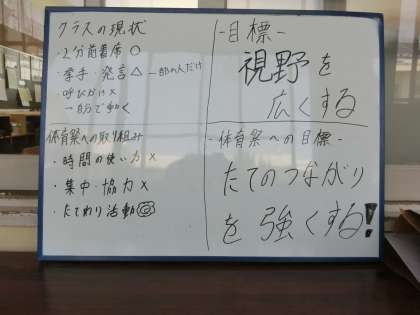 クラスの現状
・2分前着席 ○
・挙手・発言 △ 一部の人だけ
・呼びかけ×
→自分で動く
体育祭への取り組み
・時間の使い方 ×
・集中・協力 ×
・たてわり活動◎
-目標-
視野を
広くする
-体育祭への目標-
たてのつながり
を強くする!